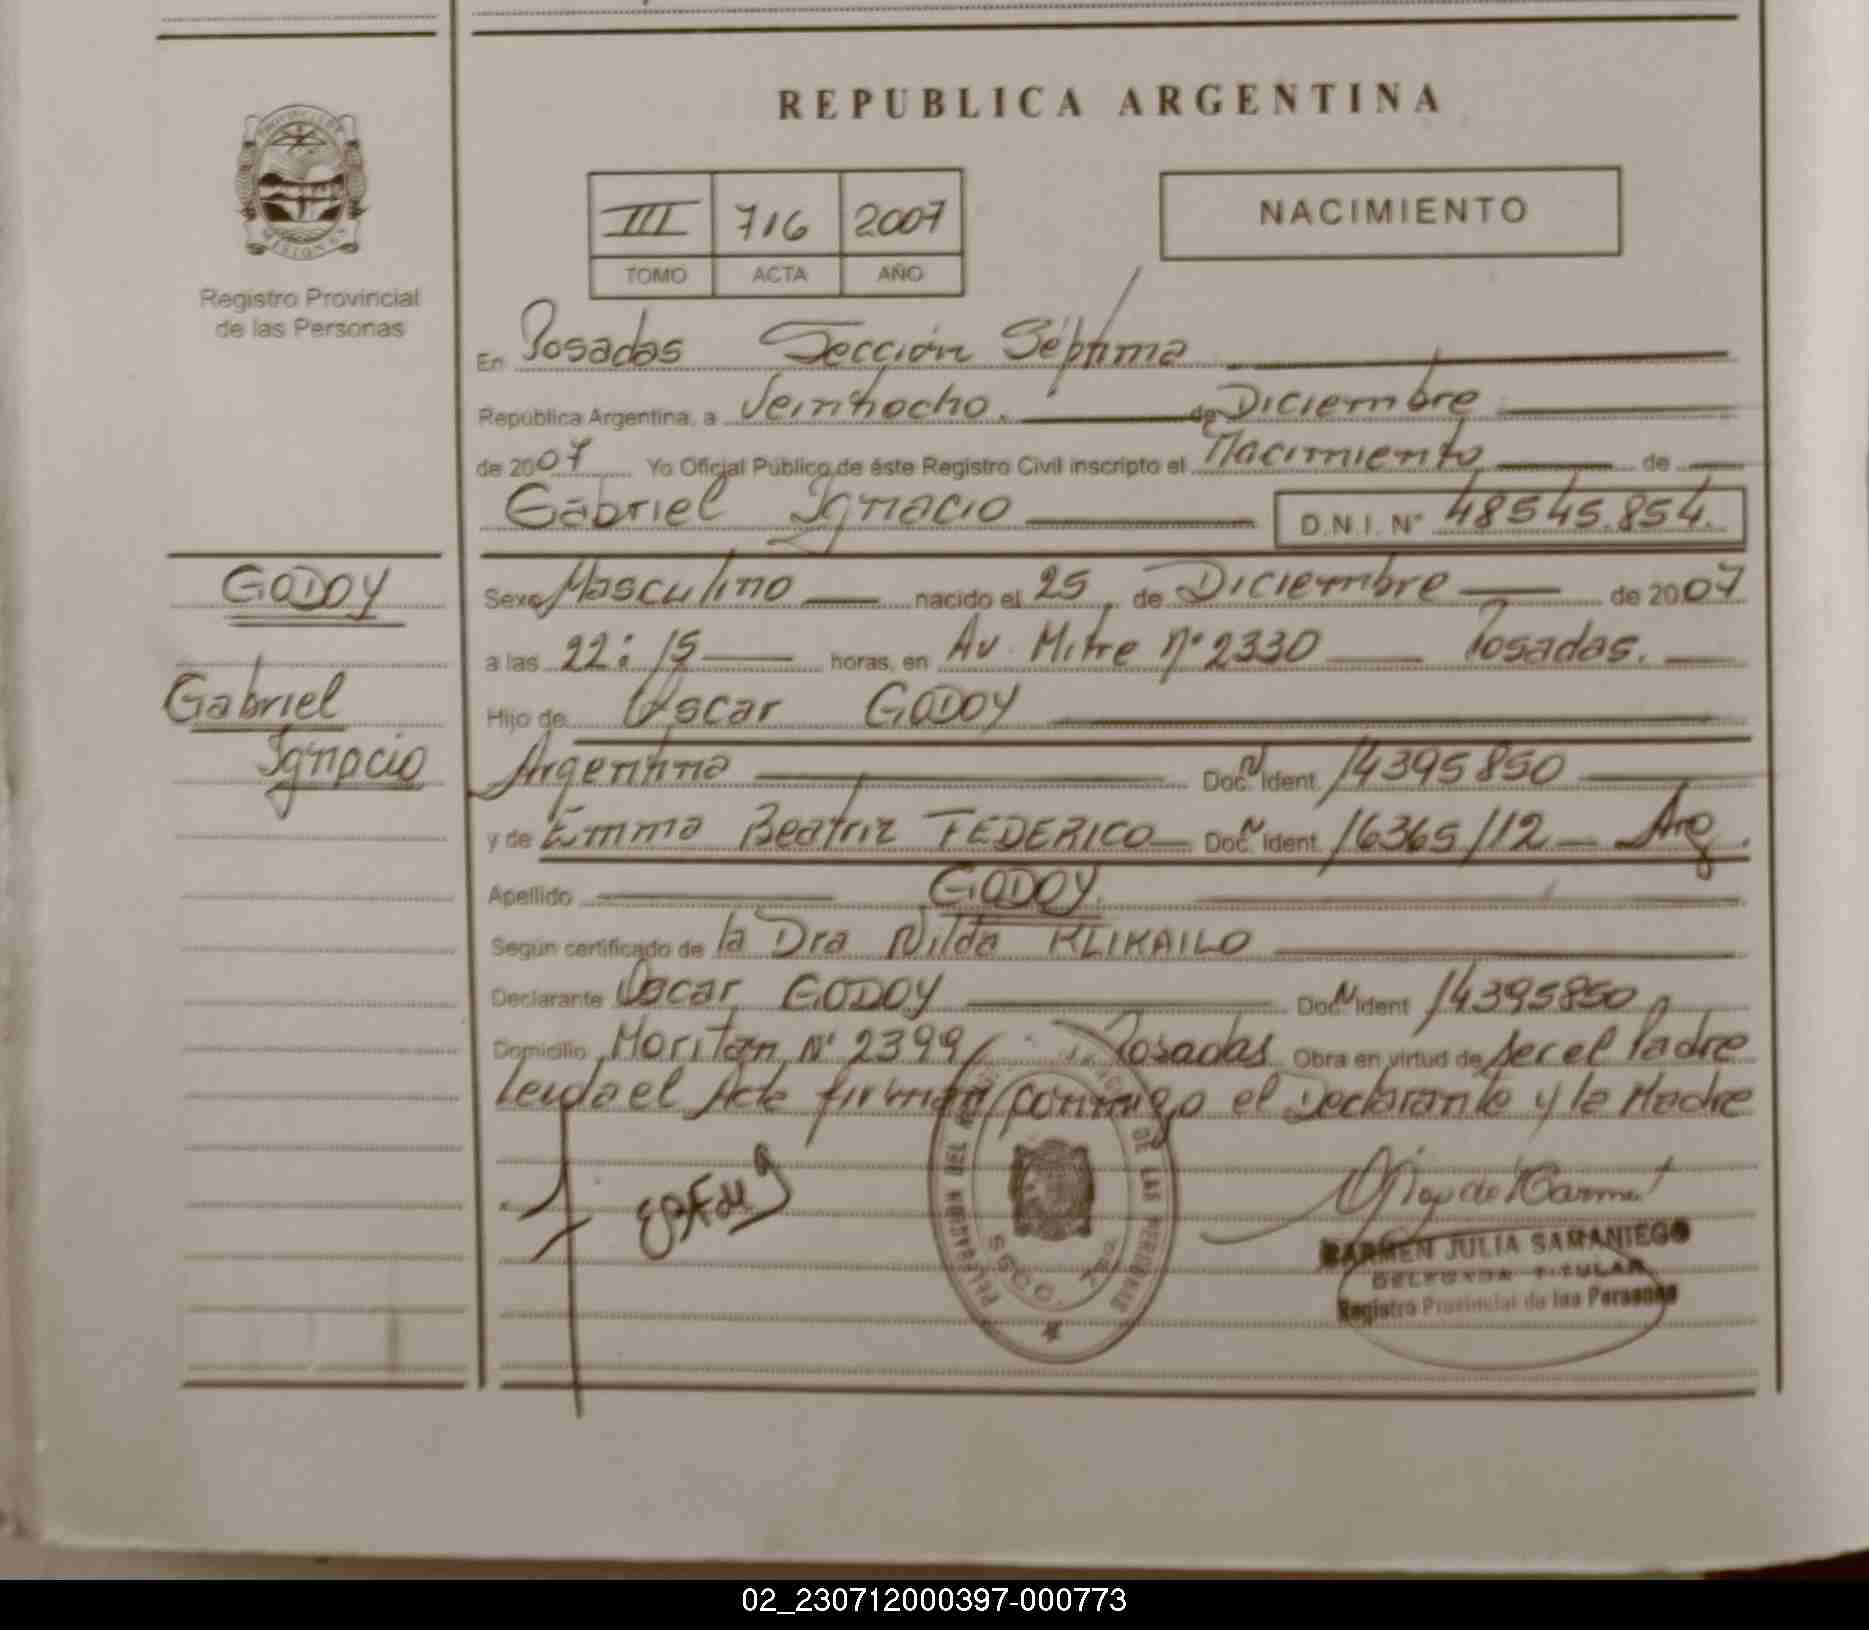 REPUBLICA ARGENTINA
PROVINCIA DE MISIONES
Registro Provincial
de las Personas
III 716 2007
TOMO ACTA AÑO
NACIMIENTO
En Posadas Sección Séptima
República Argentina, a Veintiocho de Diciembre
de 2007 Yo Oficial Público de éste Registro Civil inscripto el Nacimiento de
Gabriel Ignacio D.N.I. N° 48545.854.
GODOY
Gabriel
Ignacio
Sexo Masculino nacido el 25 de Diciembre de 2007
a las 22:15 horas, en Av. Mitre N° 2330 Posadas.
Hijo de Oscar GODOY
Argentina Doc. N Ident. 14395850
y de Emma Beatriz FEDERICO Doc. N Ident. 16365112 Arg.
Apellido GODOY.
Según certificado de la Dra Nilda KLIKAILO
Declarante Oscar GODOY Doc. N Ident 14395850
Domicilio N° 2399 Posadas Obra en virtud de ser el Padre
Leida el Acta firman conmigo el Declarante y la Madre
DE LAS PERSONAS
CARMEN JULIA SAMANIEGO
DELEGADA TITULAR
Registro Provincial de las Personas
02_230712000397-000773